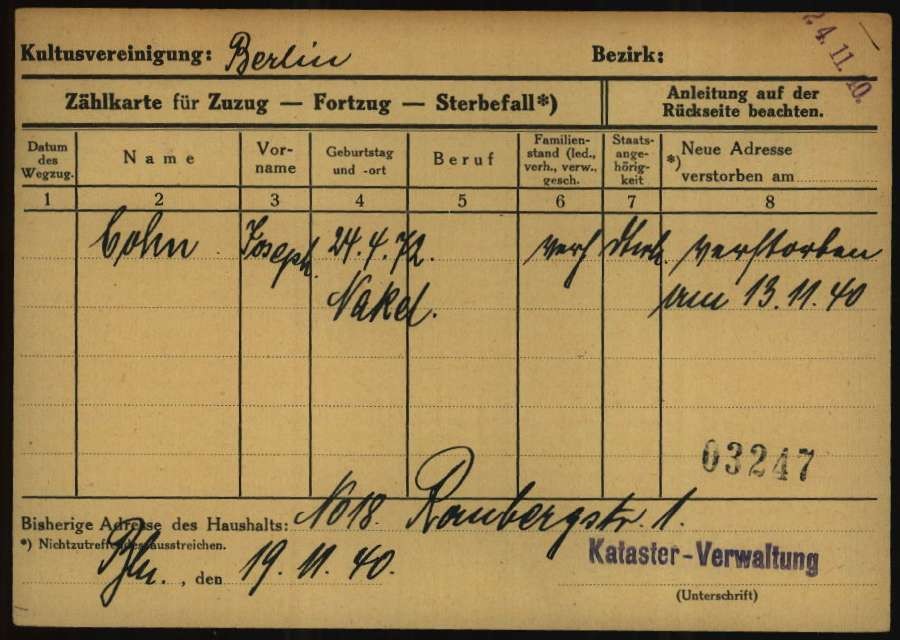 Kultusvereinigung: Berlin Bezirk:
4. 11. 40.
Zählkarte für Zuzug — Fortzug — Sterbefall*)
Anleitung auf der
Rückseite beachten.
Datum
des
Wegzug.
Name
Vor-
name
Geburtstag
und -ort
Beruf
Familien-
stand (led.,
verh., verw.,
gesch.
Staats-
ange-
hörig-
keit
Neue Adresse
*)
verstorben am
1 2 3 4 5 6 7 8
Cohn Joseph. 24.4.72. verh verstorben
Nakel. am 13.11.40
03247
Bisherige Adresse des Haushalts: No 18. Rombergstr. 1.
*) Nichtzutreffendes ausstreichen.
Bln., den 19. 11. 40.
Kataster-Verwaltung
(Unterschrift)